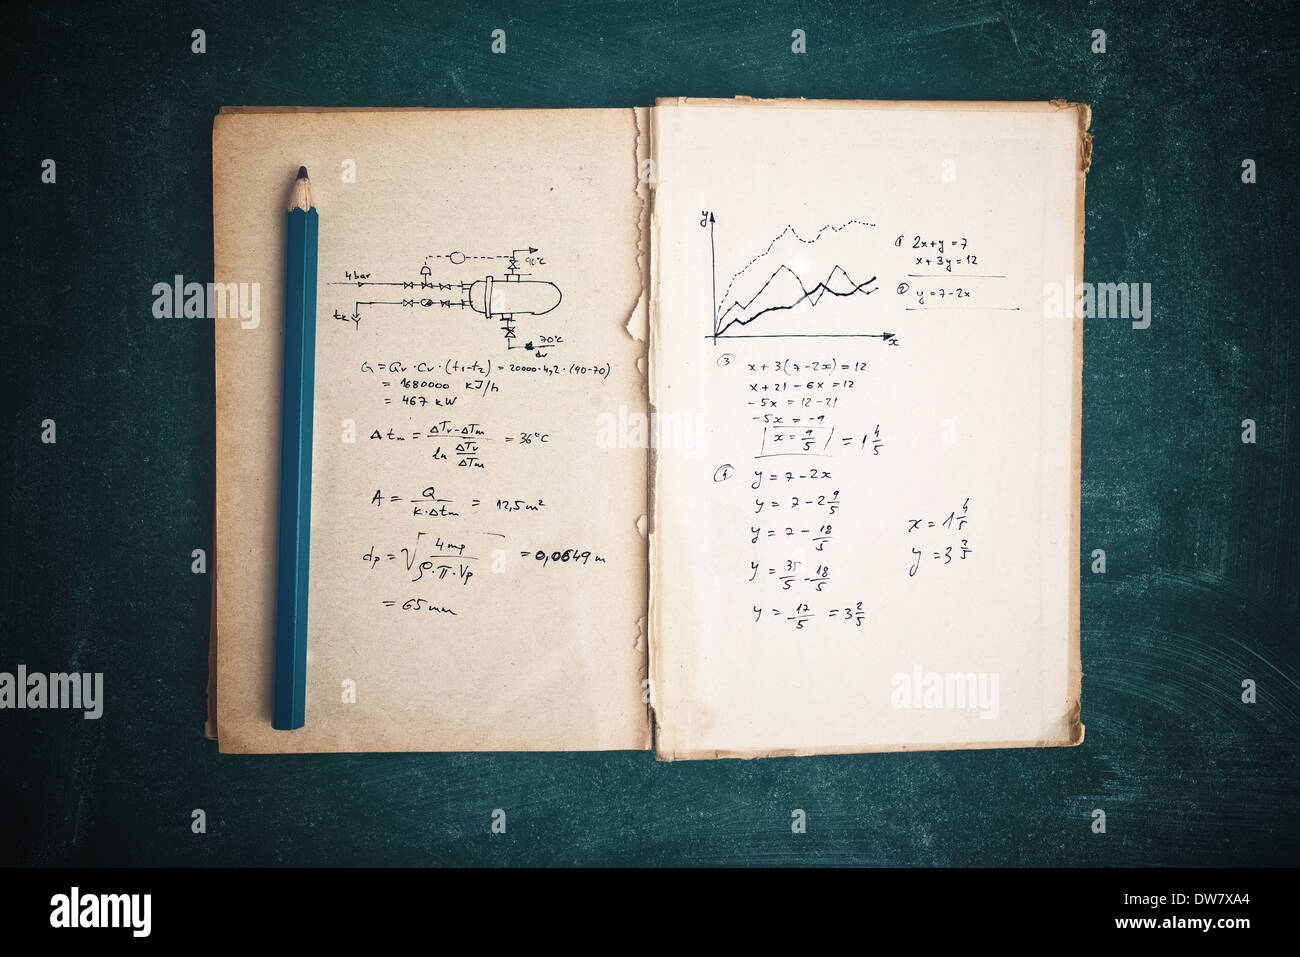 4bar
90°C
tk
70°C
dv
Q = Qv · Cv · (t1-t2) = 20000·4,2·(90-70)
= 1680000 KJ/h
= 467 kW
Δtm = ΔTv-ΔTm / ln ΔTv/ΔTm = 36°C
A = Q / K·Δtm = 12,5m²
dp = √ 4mp / ρ·π·Vp = 0,0649 m
= 65mm
y
x
① 2x+y=7
x+3y=12
② y=7-2x
③ x+3(7-2x)=12
x+21-6x=12
-5x=12-21
-5x=-9
x=9/5 = 1 4/5
④ y=7-2x
y=7-2 9/5
y=7-18/5
y=35/5-18/5
y=17/5 = 3 2/5
x=1 4/5
y=3 2/5
a
alamy
alamy stock photo
DW7XA4
www.alamy.com